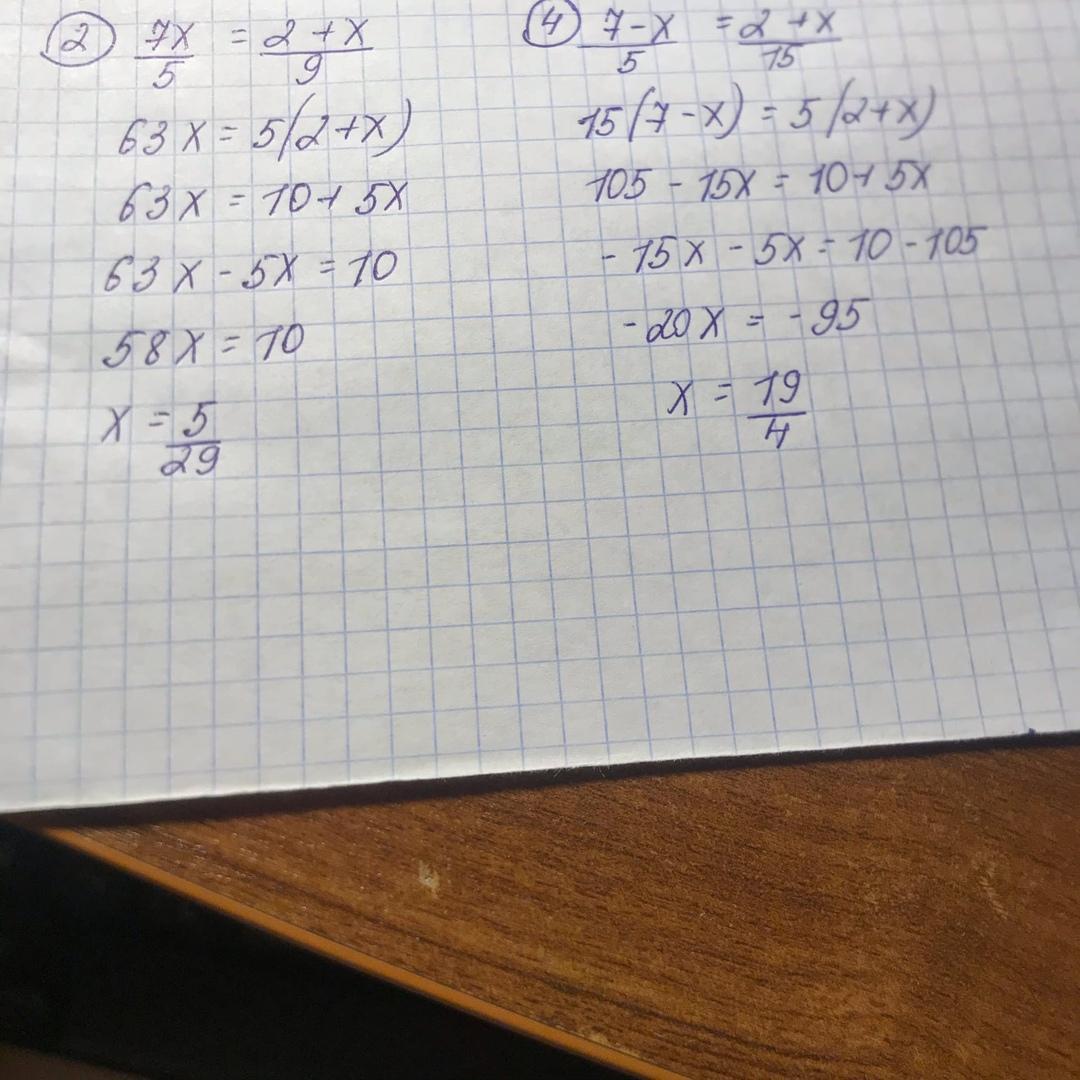 ② 7x/5 = 2+x/9
63x = 5(2+x)
63x = 10+5x
63x - 5x = 10
58x = 10
x = 5/29
④ 7-x/5 = 2+x/15
15(7-x) = 5(2+x)
105 - 15x = 10+5x
-15x - 5x = 10 - 105
-20x = -95
x = 19/4